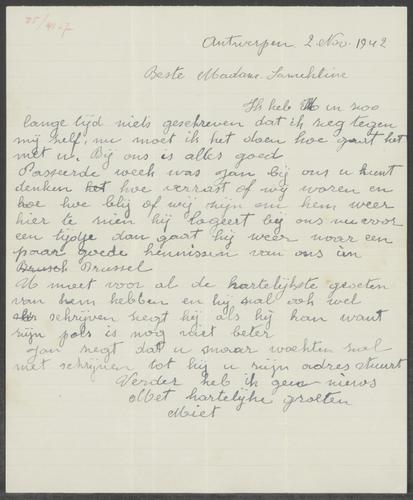 25/41-7
Antwerpen 2 Nov. 1942
Beste Madame
Ik heb in zoo
lange tijd niets geschreven dat ik zeg tegen
mij zelf, nu moet ik het doen hoe gaat het
met u. Bij ons is alles goed
Passeerde week was Jan bij ons u kunt
denken hoe verrast of wij waren en
hoe hoe blij of wij zijn om hem weer
hier te zien hij logeert bij ons nu voor
een tijdje dan gaat hij weer naar een
paar goede kennissen van ons in
Brussel
U moet voor al de hartelijkste groeten
van hem hebben en hij zal ook wel
schrijven zegt hij als hij kan want
zijn pols is nog niet beter
Jan zegt dat u maar wachten zal
met schrijven tot hij u zijn adres stuurt
Verder heb ik geen nieuws
Met hartelijke groeten
Miet